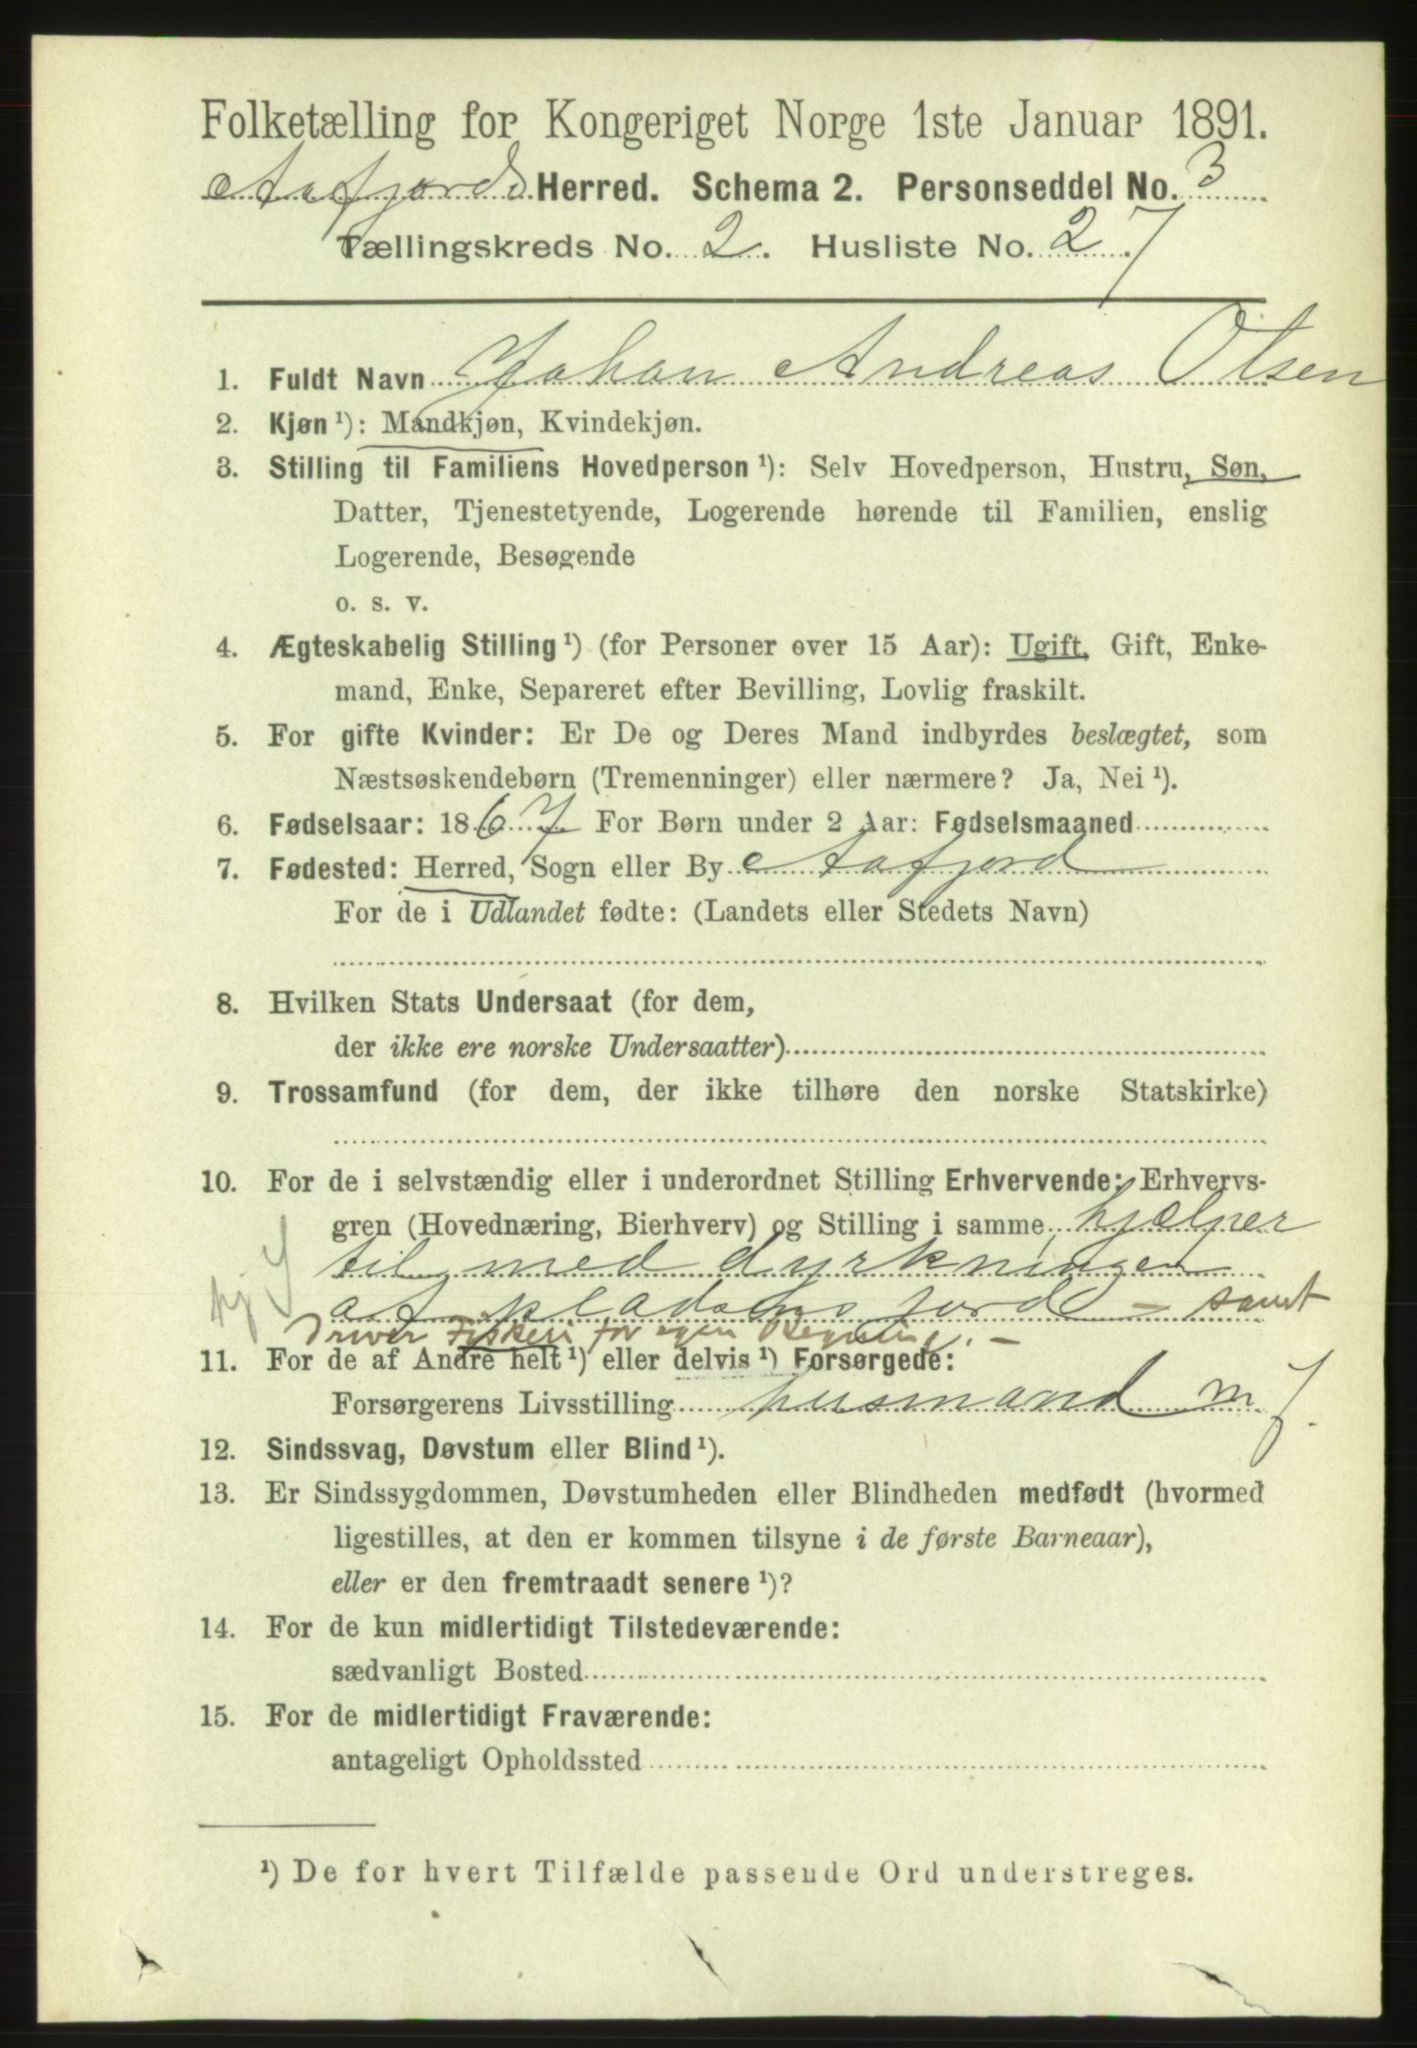 Folketælling for Kongeriget Norge 1ste Januar 1891.
Aafjords Herred. Schema 2. Personseddel No. 3
Tællingskreds No. 2. Husliste No. 27.
1. Fuldt Navn Johan Andreas Olsen
2. Kjøn ¹): Mandkjøn, Kvindekjøn.
3. Stilling til Familiens Hovedperson ¹): Selv Hovedperson, Hustru, Søn,
Datter, Tjenestetyende, Logerende hørende til Familien, enslig
Logerende, Besøgende
o. s. v.
4. Ægteskabelig Stilling ¹) (for Personer over 15 Aar): Ugift, Gift, Enke-
mand, Enke, Separeret efter Bevilling, Lovlig fraskilt.
5. For gifte Kvinder: Er De og Deres Mand indbyrdes beslægtet, som
Næstsøskendebørn (Tremenninger) eller nærmere? Ja, Nei ¹).
6. Fødselsaar: 1867 For Børn under 2 Aar: Fødselsmaaned
7. Fødested: Herred, Sogn eller By Aafjord
For de i Udlandet fødte: (Landets eller Stedets Navn)
8. Hvilken Stats Undersaat (for dem,
der ikke ere norske Undersaatter)
9. Trossamfund (for dem, der ikke tilhøre den norske Statskirke)
10. For de i selvstændig eller i underordnet Stilling Erhvervende: Erhvervs-
gren (Hovednæring, Bierhverv) og Stilling i samme, hjælper
til med dyrkningen
af pladsens jord – samt
hj
Driver Fiskeri for egen Regning. –
11. For de af Andre helt ¹) eller delvis ¹) Forsørgede:
Forsørgerens Livsstilling husmand m j.
12. Sindssvag, Døvstum eller Blind ¹).
13. Er Sindssygdommen, Døvstumheden eller Blindheden medfødt (hvormed
ligestilles, at den er kommen tilsyne i de første Barneaar),
eller er den fremtraadt senere ¹)?
14. For de kun midlertidigt Tilstedeværende:
sædvanligt Bosted
15. For de midlertidigt Fraværende:
antageligt Opholdssted
¹) De for hvert Tilfælde passende Ord understreges.